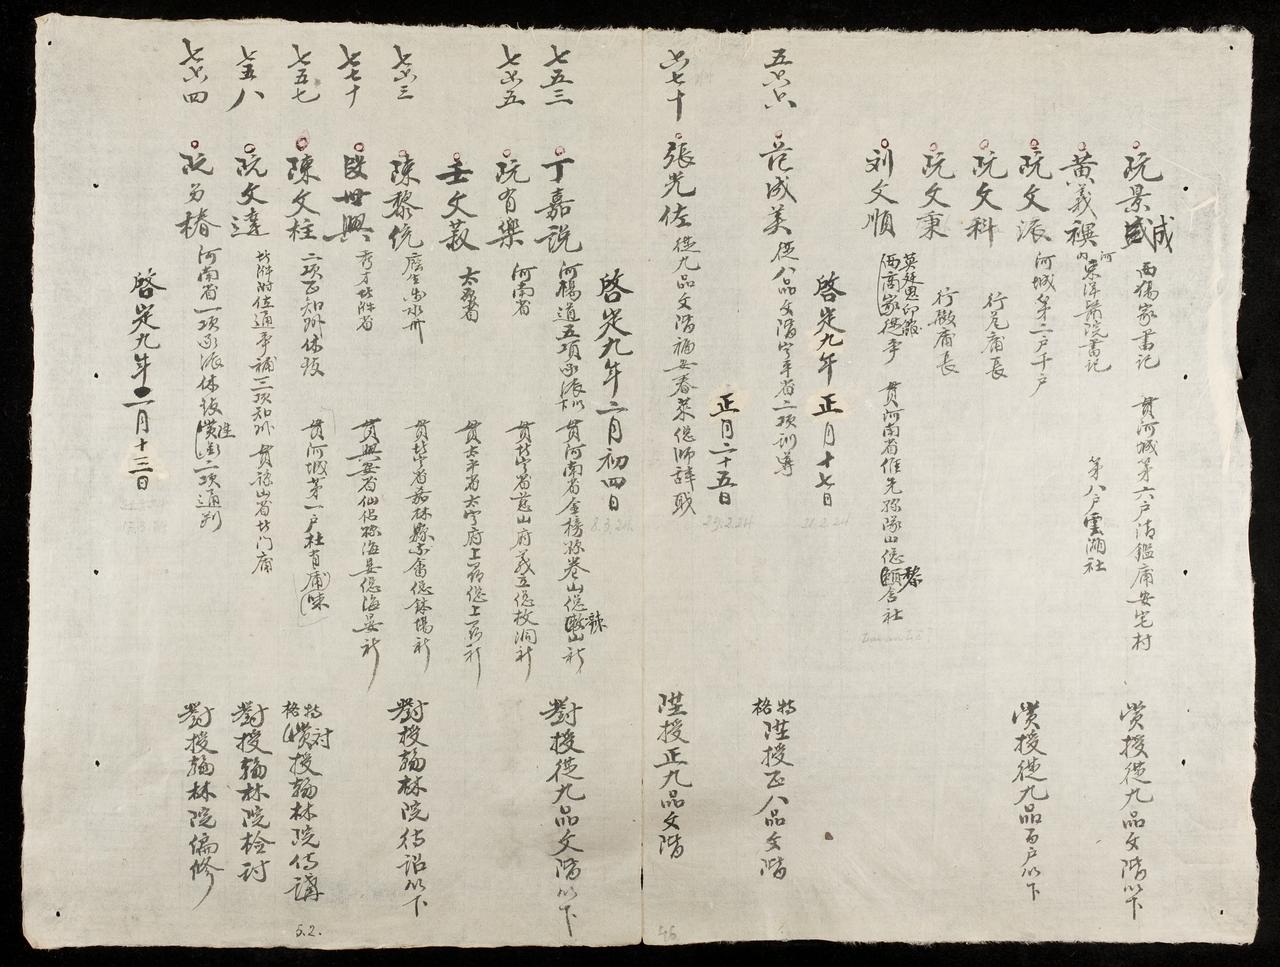 阮景盛 成 西獨家書記 貫河城第六戶清鑑庸安宅村 賞授從九品文階以下
黃義 河內東洋醫院書記 第八戶雲湖社
阮文派 河城第二戶千戶 賞授從九品百戶以下
阮文科 行 庸長
阮文秉 行 庸長
刘文順 西商家從事 貫河南省維先縣隊山總 黎舍社
啓定九年正月十七日
21.2.24
五六六 范成美 從八品文階寧平省二項訓導 特格陞授正八品文階
正月二十五日
29.2.24
六七十 張光佐 從九品文階福安春萊總師辞職 陞授正九品文階
46
啓定九年二月初四日
8.3.24
七五三 丁嘉説 河楊道五項承派 以下 貫河南省金榜縣卷山總 山社 對授從九品文階以下
七六五 阮有樂 河南省 貫北寧省慈山府義立總枚洞社
壬文 太原省 貫太平省太寧府上 總上 社
七六三 陳黎伉 蔭生 貫北寧省嘉林縣 總鉢場社 對授翰林院待詔以下
七七十 段世興 秀才北 省 貫興安省仙侶縣海晏總海晏社
七五七 陳文柱 二項正知州休致 貫河城第一戶 庸 特格 対授翰林院侍講
5.2.
七五八 阮文達 通事補三項知州 貫諒山省北门庸 對授翰林院檢討
七六四 阮 椿 河南省一項承派休致 二項通判 對授翰林院編修
啓定九年二月十三日